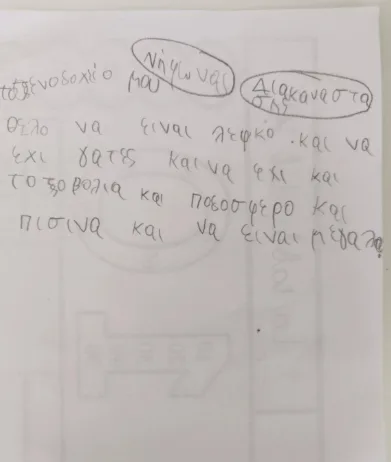 Νηφωνας
το ξενοδοχιο μου Διακαναστα
σης
θελο να ειναι λεφκο .και να
εχι γατες και να εχι και
το ξοβολια και ποδοσφερο και
πισινα και να ειναι μεγαλα